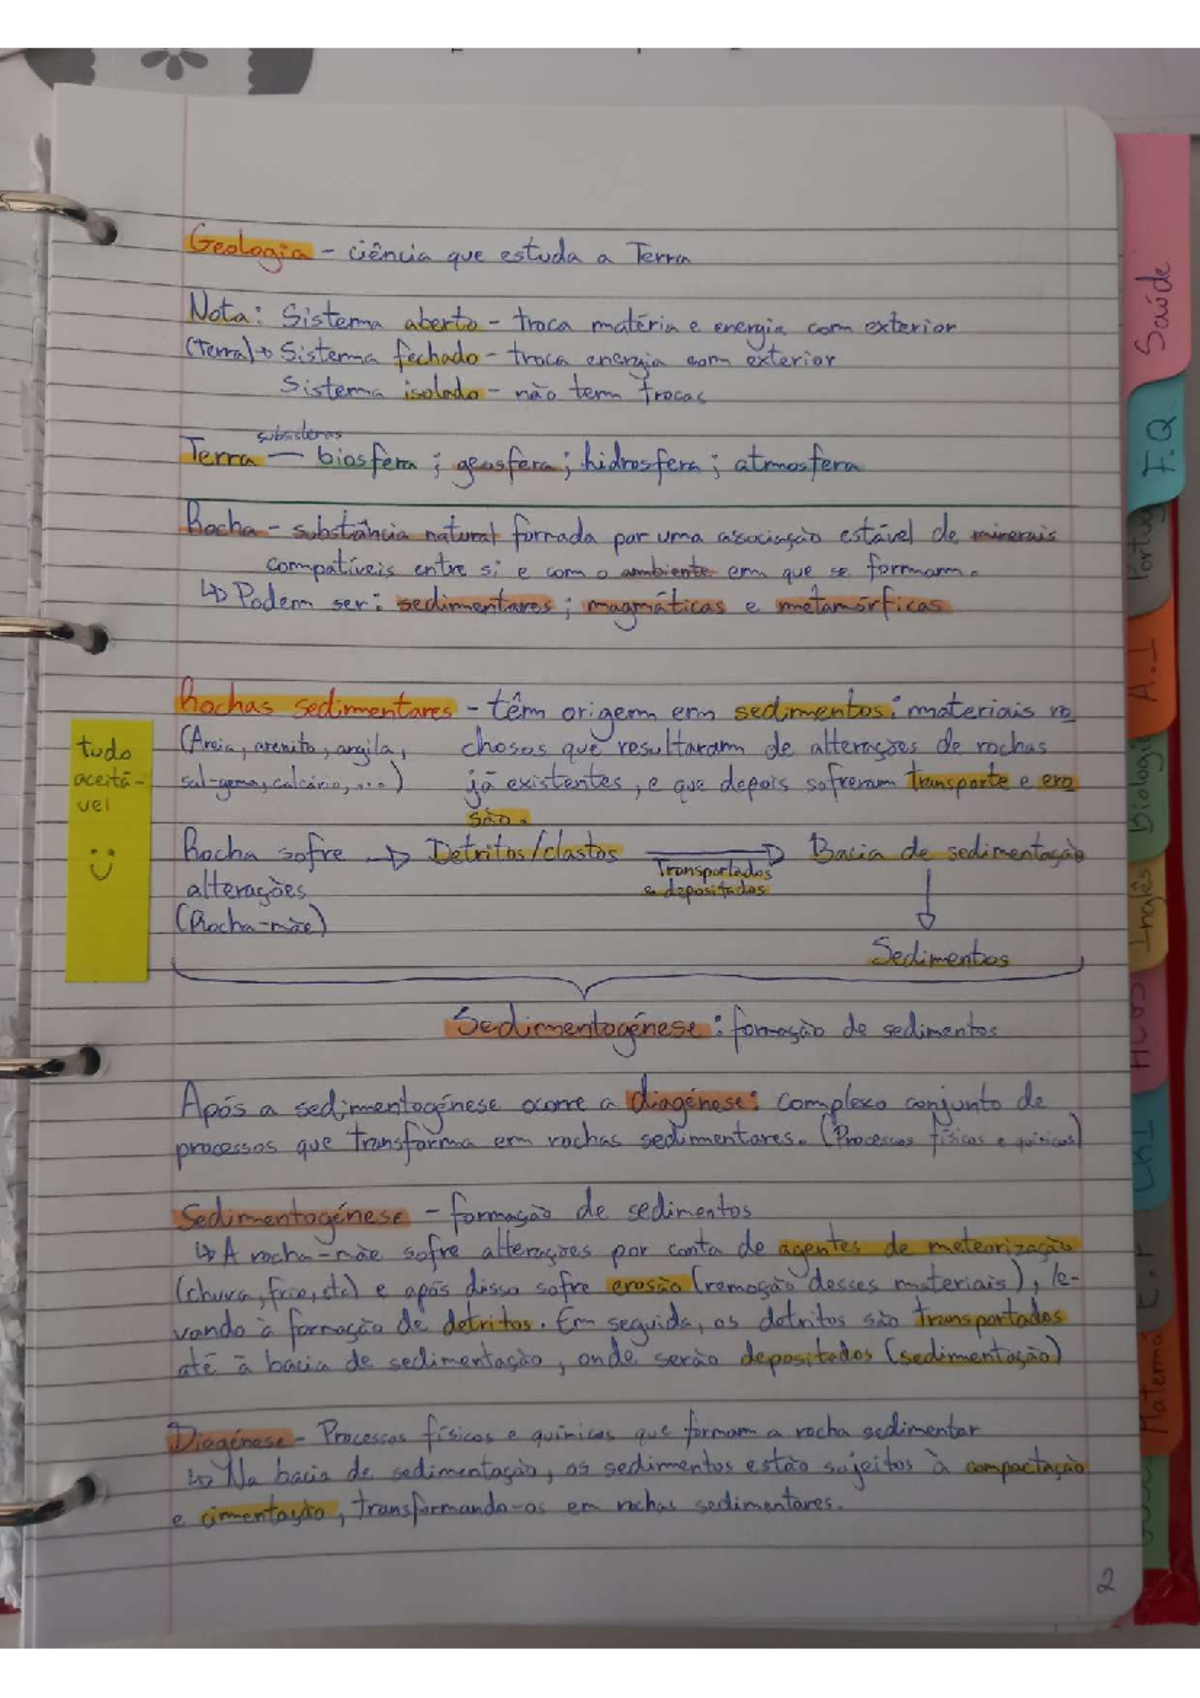 Geologia - ciência que estuda a Terra
Nota: Sistema aberto - troca matéria e energia com exterior
(Terra)→ Sistema fechado - troca energia com exterior
Sistema isolado - não tem trocas
subsistemas
Terra — biosfera ; geosfera ; hidrosfera ; atmosfera
Rocha - substância natural formada por uma associação estável de minerais
compatíveis entre si e com o ambiente em que se formam.
↳ Podem ser: sedimentares ; magmáticas e metamórficas
Rochas sedimentares - têm origem em sedimentos: materiais ro
(Areia, arenito, argila, chosos que resultaram de alterações de rochas
sal-gema, calcário, ...) já existentes, e que depois sofreram transporte e ero
são.
tudo
aceitá-
vel
:)
Rocha sofre → Detritos/clastos → Bacia de sedimentação
Transportados
e depositados
alterações
(Rocha-mãe)
Sedimentos
Sedimentogénese: formação de sedimentos
Após a sedimentogénese ocorre a diagénese: complexo conjunto de
processos que transforma em rochas sedimentares. (Processos físicos e químicos)
Sedimentogénese - formação de sedimentos
↳ A rocha-mãe sofre alterações por conta de agentes de meteorização
(chuva, frio, etc) e após disso sofre erosão (remoção desses materiais), le-
vando à formação de detritos. Em seguida, os detritos são transportados
até à bacia de sedimentação, onde serão depositados (sedimentação)
Diagénese - Processos físicos e químicos que formam a rocha sedimentar
↳ Na bacia de sedimentação, os sedimentos estão sujeitos à compactação
e cimentação, transformando-os em rochas sedimentares.
2
Saúde
F.Q
Portug
A.I
Biologi
Inglês
CnT
E.F
Matemá